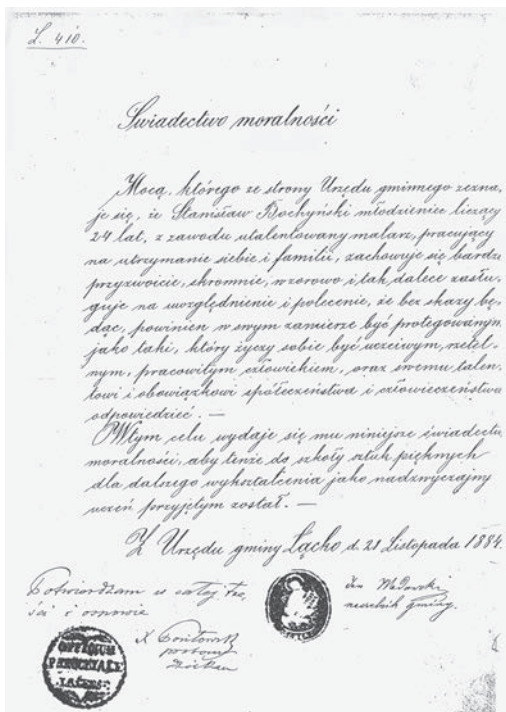 L. 410.
Świadectwo moralności
Mocą, którego ze strony Urzędu gminnego zezna,
je się, że Stanisław Bochyński młodzieniec liczący
24 lat, z zawodu utalentowany malarz, pracujący
na utrzymanie siebie i familii, zachowuje się bardzo
przyzwoicie, skromnie, wzorowo i tak dalece zasłu,
guje na uwzględnienie i polecenie, że bez skazy bę,
dąc, powinien w swym zamierze być protegowanym
jako taki, który życzy sobie być uczciwym, rzetel,
nym, pracowitym człowiekiem, oraz swemu talen,
towi i obowiązkowi społeczeństwa i człowieczeństwa
odpowiedzieć. —
W tym celu wydaje się mu niniejsze świadectwo
moralności, aby tenże do szkoły sztuk pięknych
dla dalszego wykształcenia jako nadzwyczajny
uczeń przyjętym został. —
Z Urzędu gminy Łącko d. 21 Listopada 1884.
Potwierdzam w całej tre,
ści i osnowie
Jan
naczelnik gminy.
X.
OFFICIUM
PAROCHIALE